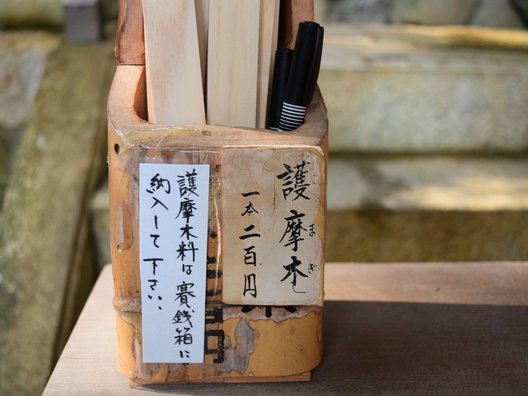 護摩木
まぎ
一本 二百円
護摩木料は賽銭箱に
納入して下さい。